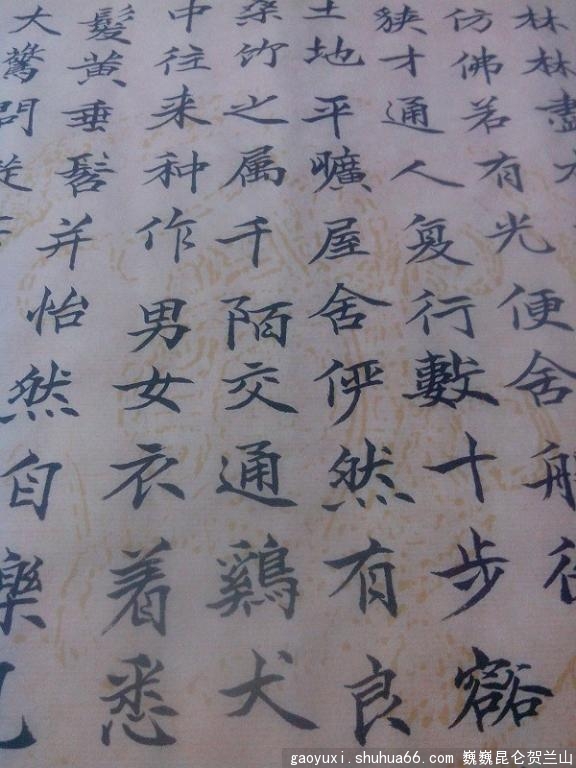 林林盡
仿佛若有光便舍船
狹才通人复行數十步豁
土地平曠屋舍俨然有良
桑竹之属千陌交通鷄犬
中往来种作男女衣着悉
髮黄垂髫并怡然自樂見
大驚問從
gaoyuxi.shuhua66.com 巍巍昆仑贺兰山